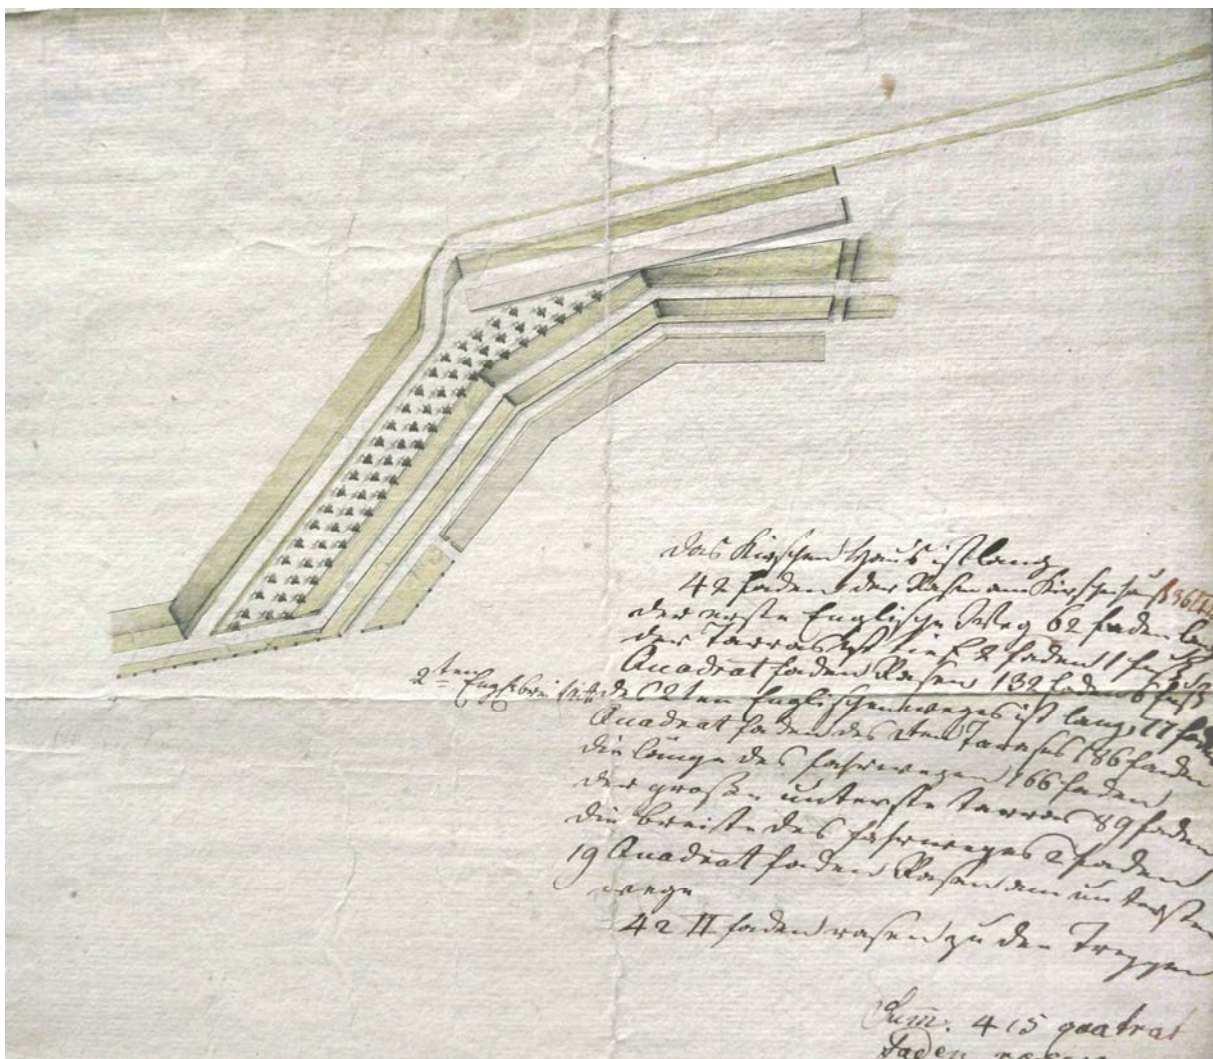 das Kirschen Haus ist lang
42 faden der Rasen am Kirschenhaus 36
der erste Englische Weg 62 faden lang
der Tarras ist tief 2 faden 1 fuß
Quadrat faden Rasen 132 faden 6 fuß
2ten Engl. breite
des 2ten Englischenweges ist lang 77 faden
Quadrat faden des 2ten Tarases 186 faden
die länge des fahrweges 166 faden
der große unterste tarras 89 faden
die breite des fahrweges 2 faden
19 Quadrat faden Rasen am untersten
wege
42 II faden rasen zu den Treppen
Sum: 415 quatrat
faden